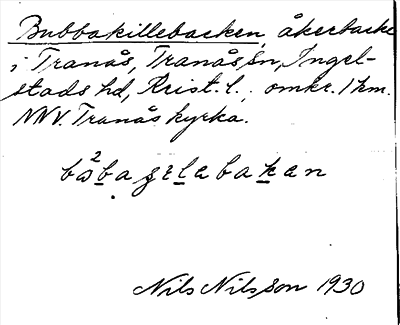 Bubbakillebacken, åkerbacke
i Tranås, Tranås sn, Ingel-
stads hd, Krist. l., omkr. 1 km.
NNV. Tranås kyrka.
Nils Nilsson 1930